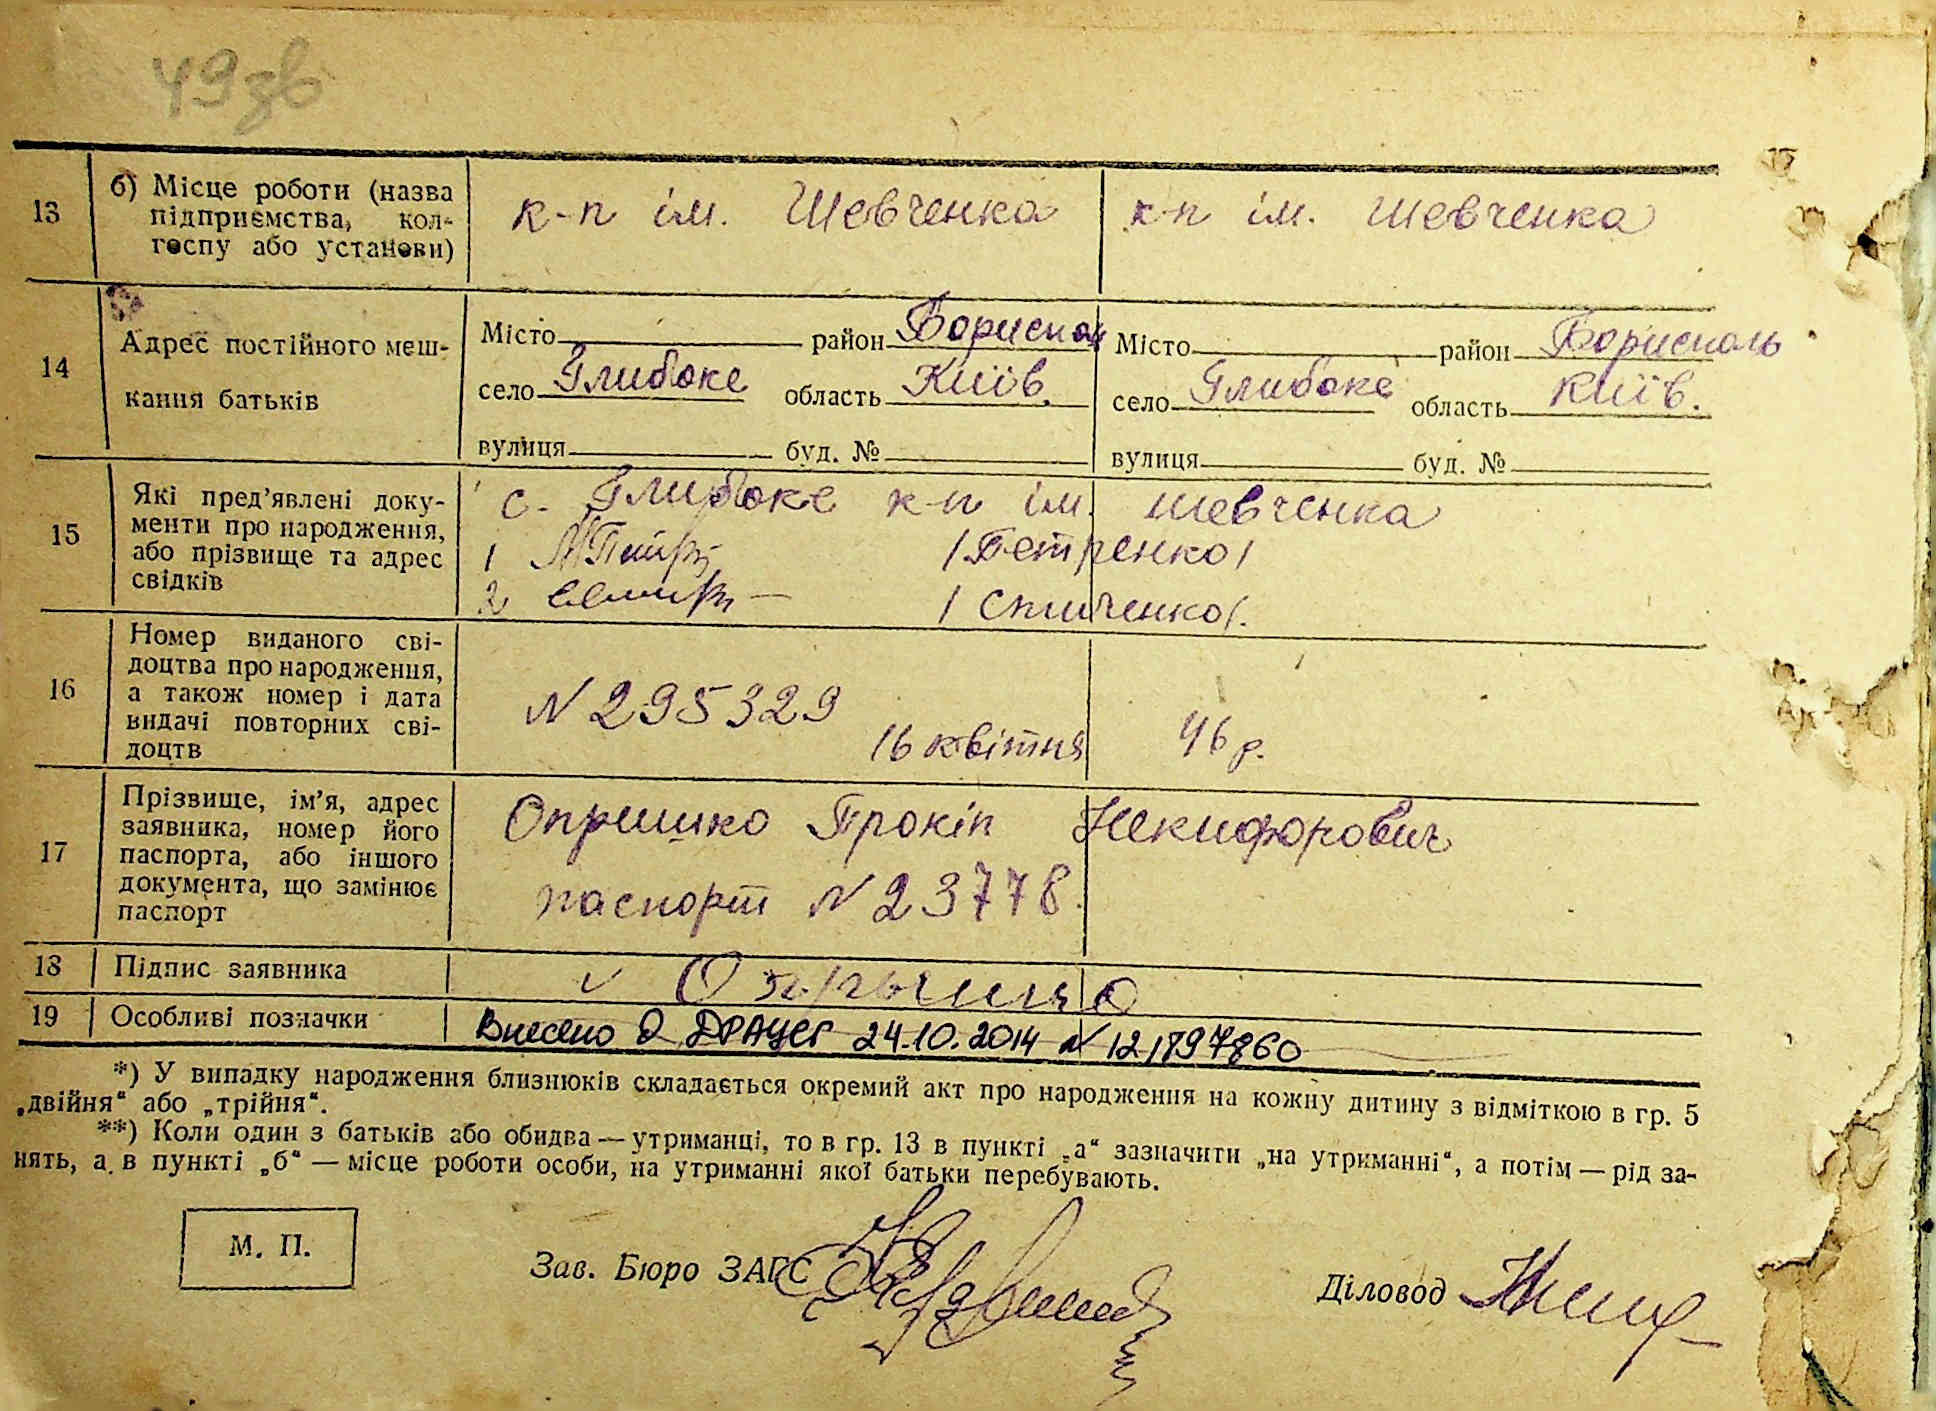 49 зв
13 б) Місце роботи (назва підприємства, колгоспу або установи) к-п ім. Шевченка к-п ім. Шевченка
14 Адрес постійного мешкання батьків
Місто район Бориспол Місто район Бориспель
село Глибоке область Київ. село Глибоке область Київ.
вулиця буд. № вулиця буд. №
15 Які пред’явлені документи про народження, або прізвище та адрес свідків
с. Глибоке к-п ім. Шевченка
1 /Петренко/
2 /Спиченко/.
16 Номер виданого свідоцтва про народження, а також номер і дата видачі повторних свідоцтв
N 295329
16 квітня 46 р.
17 Прізвище, ім’я, адрес заявника, номер його паспорта, або іншого документа, що замінює паспорт
Опришко Прокіп Некифорович
паспорт N 23778.
18 Підпис заявника
19 Особливі позначки Внесено в ДРАЦСГ 24.10.2014 N
*) У випадку народження близнюків складається окремий акт про народження на кожну дитину з відміткою в гр. 5
„двійня“ або „трійня“.
**) Коли один з батьків або обидва — утриманці, то в гр. 13 в пункті „а“ зазначити „на утриманні“, а потім — рід за-
нять, а в пункті „б“ — місце роботи особи, на утриманні якої батьки перебувають.
М. П.
Зав. Бюро ЗАГС
Діловод